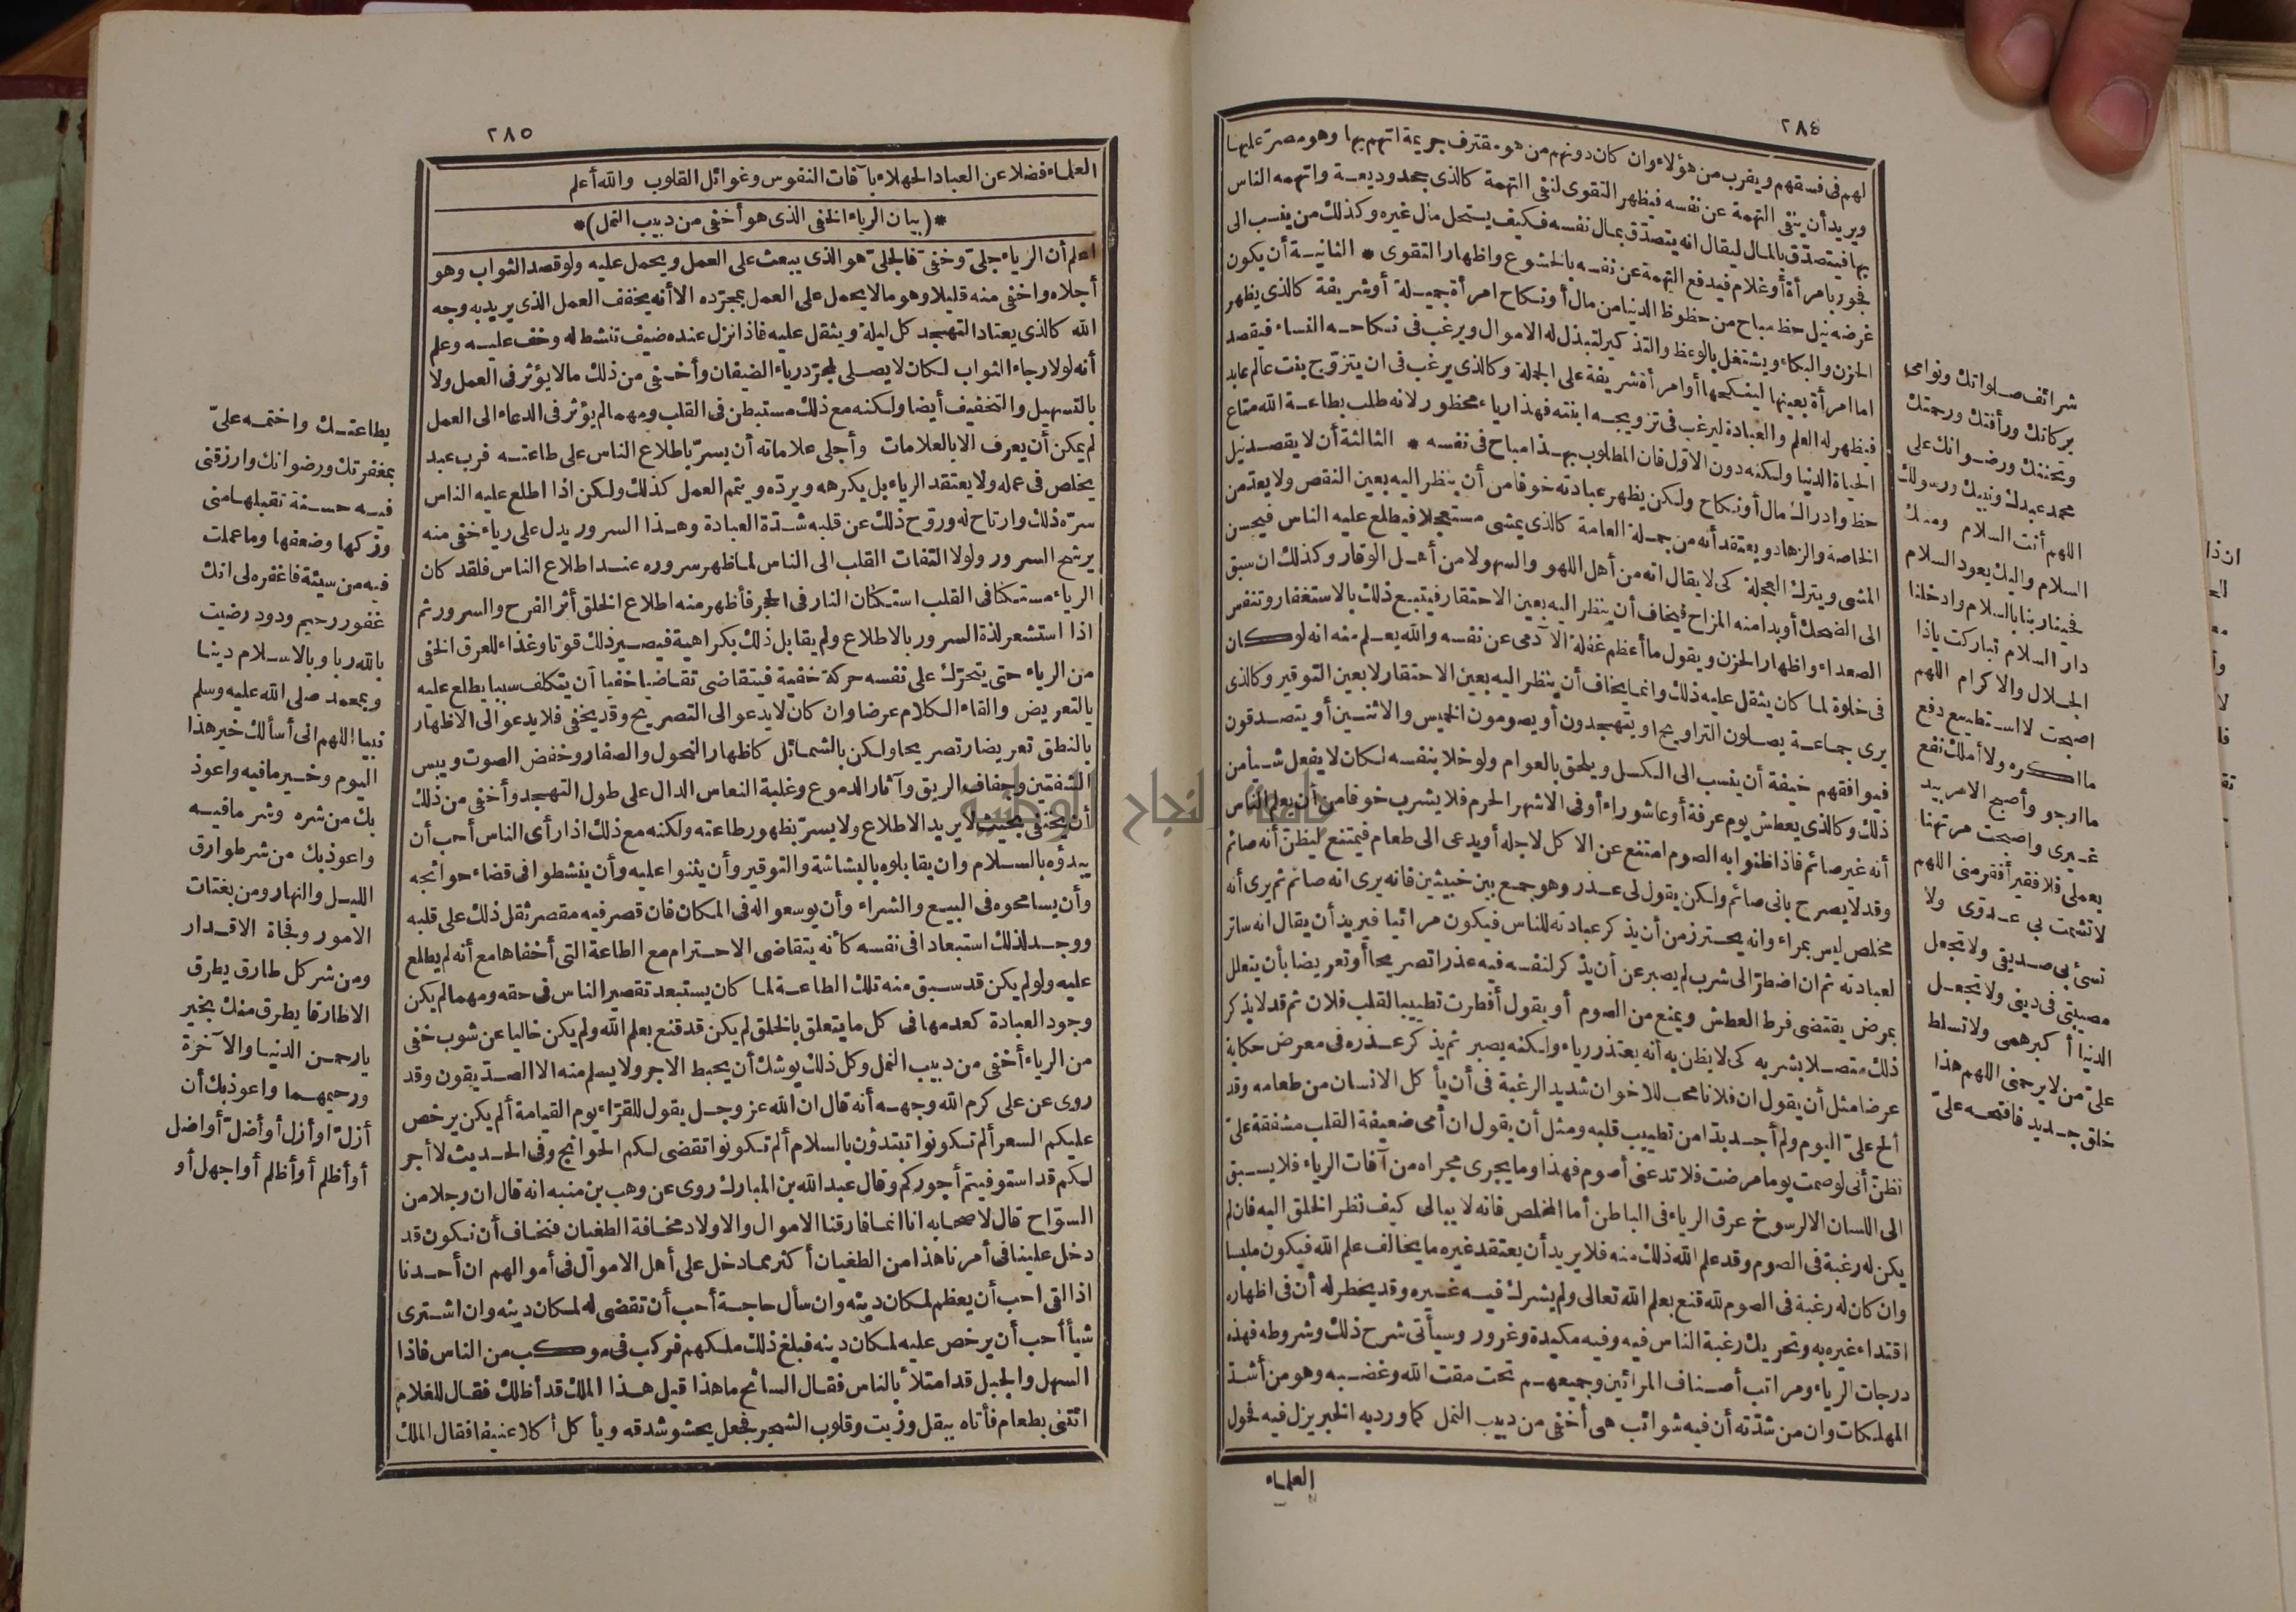 ٢٨٤
لهم فى فسقهم ويقرب من هؤلاء وان كان دونهم من هو مقترف جريمة اتهم بها وهو مصرّ عليها
ويريد أن ينفى التهمة عن نفسه فيظهر التقوى لنفى التهمة كالذى جحد وديعة واتهمه الناس
بها فيتصدّق بالمال ليقال انه يتصدّق بمال نفسه فكيف يستحل مال غيره وكذلك من ينسب الى
فجور بامرأة أو غلام فيدفع التهمة عن نفسه بالخشوع واظهار التقوى * الثانية أن يكون
غرضه نيل حظ مباح من حظوظ الدنيا من مال أو نكاح امرأة جميلة أو شريفة كالذى يظهر
الحزن والبكاء ويشتغل بالوعظ والتذكير لتبذل له الاموال ويرغب فى نكاحه النساء فيقصد
اما امرأة بعينها لينكحها أو امرأة شريفة على الجملة وكالذى يرغب فى ان يتزوّج بنت عالم عابد
فيظهر له العلم والعبادة ليرغب فى تزويجه ابنته فهذا رياء محظور لانه طلب بطاعة الله متاع
الحياة الدنيا ولكنه دون الاوّل فان المطلوب بهذا مباح فى نفسه * الثالثة أن لا يقصد نيل
حظ وادراك مال أو نكاح ولكن يظهر عبادته خوفا من أن ينظر اليه بعين النقص ولا يعدّ من
الخاصة والزهاد ويعتقد أنه من جملة العامة كالذى يمشى مستعجلا فيطلع عليه الناس فيحسن
المشى ويترك العجلة كى لا يقال انه من أهل اللهو والسهو لا من أهل الوقار وكذلك ان سبق
الى الضحك أو بدا منه المزاح فيخاف أن ينظر اليه بعين الاحتقار فيتبع ذلك بالاستغفار وتنفس
الصعداء واظهار الحزن ويقول ما أعظم غفلة الآدمى عن نفسه والله يعلم منه انه لو كان
فى خلوة لما كان يثقل عليه ذلك وانما يخاف أن ينظر اليه بعين الاحتقار لا بعين التوقير وكالذى
يرى جماعة يصلون التراويح او يتهجدون أو يصومون الخميس والاثنين أو يتصدقون
فيوافقهم خيفة أن ينسب الى الكسل ويلحق بالعوام ولو خلا بنفسه لكان لا يفعل شيأ من
ذلك وكالذى يعطش يوم عرفة أو عاشوراء أو فى الاشهر الحرم فلا يشرب خوفا من أن يعلم الناس
أنه غير صائم فاذا ظنوا به الصوم امتنع عن الاكل لاجله أو يدعى الى طعام فيمتنع ليظنّ أنه صائم
وقد لا يصرح بانى صائم ولكن يقول لى عذر وهو جمع بين خبيثين فانه يرى انه صائم ثم يرى أنه
مخلص ليس بمراء وانه يحترز من أن يذكر عبادته للناس فيكون مرائيا فيريد أن يقال انه ساتر
لعبادته ثم ان اضطرّ الى شرب لم يصبر عن أن يذكر لنفسه فيه عذرا تصريحا أو تعريضا بأن يتعلل
بمرض يقتضى فرط العطش ويمنع من الصوم أو يقول أفطرت تطييبا لقلب فلان ثم قد لا يذكر
ذلك متصلا بشربه كى لا يظن به أنه يعتذر رياء ولكنه يصبر ثم يذكر عذره فى معرض حكاية
عرضا مثل أن يقول ان فلانا محب للاخوان شديد الرغبة فى أن يأكل الانسان من طعامه وقد
ألح علىّ اليوم ولم أجد بدّا من تطييب قلبه ومثل أن يقول ان أمى ضعيفة القلب مشفقة علىّ
تظنّ أنى لو صمت يوما مرضت فلا تدعنى أصوم فهذا وما يجرى مجراه من آفات الرياء فلا يسبق
الى اللسان الا لرسوخ عرق الرياء فى الباطن أما المخلص فانه لا يبالى كيف نظر الخلق اليه فان لم
يكن له رغبة فى الصوم وقد علم الله ذلك منه فلا يريد أن يعتقد غيره ما يخالف علم الله فيكون ملبسا
وان كان له رغبة فى الصوم لله قنع بعلم الله تعالى ولم يشرك فيه غيره وقد يخطر له أن فى اظهاره
اقتداء غيره به وتحريك رغبة الناس فيه وفيه مكيدة وغرور وسيأتى شرح ذلك وشروطه فهذه
درجات الرياء ومراتب أصناف المرائين وجميعهم تحت مقت الله وغضبه وهو من أشدّ
المهلكات وان من شدّته أن فيه شوائب هى أخفى من دبيب النمل كما ورد به الخبر يزل فيه فحول
العلماء
شرائف صلواتك ونوامى
بركاتك ورأفتك ورحمتك
وتحننك ورضوانك على
محمد عبدك ونبيك ورسولك
اللهم أنت السلام ومنك
السلام واليك يعود السلام
فحينا ربنا بالسلام وادخلنا
دار السلام تباركت ياذا
الجلال والاكرام اللهم
اصبحت لا استطيع دفع
ما اكره ولا أملك نفع
ما ارجو وأصبح الامر بيد
غيرى واصبحت مرتهنا
بعملى فلا فقير أفقر منى اللهم
لا تشمت بى عدوّى ولا
تسئ بى صديقى ولا تجعل
مصيبتى فى دينى ولا تجعل
الدنيا أكبر همى ولا تسلط
علىّ من لا يرحمنى اللهم هذا
خلق جديد فافتحه علىّ
٢٨٥
العلماء فضلا عن العباد الجهلاء بآفات النفوس وغوائل القلوب والله أعلم
*(بيان الرياء الخفى الذى هو أخفى من دبيب النمل)*
اعلم أن الرياء جلىّ وخفىّ فالجلىّ هو الذى يبعث على العمل ويحمل عليه ولو قصد الثواب وهو
أجلاه واخفى منه قليلا وهو ما لا يحمل على العمل بمجرّده الا أنه يخفف العمل الذى يريد به وجه
الله كالذى يعتاد التهجد كل ليلة ويثقل عليه فاذا نزل عنده ضيف تنشط له وخف عليه وعلم
أنه لولا رجاء الثواب لكان لا يصلى لمجرّد رياء الضيفان وأخفى من ذلك ما لا يؤثر فى العمل ولا
بالتسهيل والتخفيف أيضا ولكنه مع ذلك مستبطن فى القلب ومهما لم يؤثر فى الدعاء الى العمل
لم يمكن أن يعرف الا بالعلامات وأجلى علاماته أن يسرّ باطلاع الناس على طاعته فرب عبد
يخلص فى عمله ولا يعتقد الرياء بل يكرهه ويردّه ويتمم العمل كذلك ولكن اذا اطلع عليه الناس
سرّه ذلك وارتاح له وروّح ذلك عن قلبه شدّة العبادة وهذا السرور يدل على رياء خفى منه
يرشح السرور ولولا التفات القلب الى الناس لما ظهر سروره عند اطلاع الناس فلقد كان
الرياء مستكنا فى القلب استكنان النار فى الحجر فأظهر منه اطلاع الخلق أثر الفرح والسرور ثم
اذا استشعر لذة السرور بالاطلاع ولم يقابل ذلك بكراهية فيصير ذلك قوتا وغذاء للعرق الخفى
من الرياء حتى يتحرّك على نفسه حركة خفية فيتقاضى تقاضيا خفيا أن يتكلف سببا يطلع عليه
بالتعريض والقاء الكلام عرضا وان كان لا يدعو الى التصريح وقد يخفى فلا يدعو الى الاظهار
بالنطق تعريضا وتصريحا ولكن بالشمائل كاظهار النحول والصفار وخفض الصوت ويبس
الشفتين وجفاف الريق وآثار الدموع وغلبة النعاس الدال على طول التهجد وأخفى من ذلك
أن يختفى بحيث لا يريد الاطلاع ولا يسرّ بظهور طاعته ولكنه مع ذلك اذا رأى الناس أحب أن
يبدؤه بالسلام وان يقابلوه بالبشاشة والتوقير وأن يثنوا عليه وأن ينشطوا فى قضاء حوائجه
وأن يسامحوه فى البيع والشراء وأن يوسعوا له فى المكان فان قصر فيه مقصر ثقل ذلك على قلبه
ووجد لذلك استبعادا فى نفسه كأنه يتقاضى الاحترام مع الطاعة التى أخفاها مع أنه لم يطلع
عليه ولو لم يكن قد سبق منه تلك الطاعة لما كان يستبعد تقصير الناس فى حقه ومهما لم يكن
وجود العبادة كعدمها فى كل ما يتعلق بالخلق لم يكن قد قنع بعلم الله ولم يكن خاليا عن شوب خفى
من الرياء أخفى من دبيب النمل وكل ذلك يوشك أن يحبط الاجر ولا يسلم منه الا الصدّيقون وقد
روى عن على كرم الله وجهه أنه قال ان الله عز وجل يقول للقرّاء يوم القيامة ألم يكن يرخص
عليكم السعر ألم تكونوا تبتدؤن بالسلام ألم تكونوا تقضى لكم الحوائج وفى الحديث لا أجر
لكم قد استوفيتم أجوركم وقال عبد الله بن المبارك روى عن وهب بن منبه انه قال ان رجلا من
السوّاح قال لاصحابه انا انما فارقنا الاموال والاولاد مخافة الطغيان فنخاف أن نكون قد
دخل علينا فى أمرنا هذا من الطغيان أكثر مما دخل على أهل الاموال فى أموالهم ان أحدنا
اذا لقى احب أن يعظم لمكان دينه وان سأل حاجة أحب أن تقضى له لمكان دينه وان اشترى
شيأ أحب أن يرخص عليه لمكان دينه فبلغ ذلك ملكهم فركب فى موكب من الناس فاذا
السهل والجبل قد امتلأ بالناس فقال السائح ما هذا قيل هذا الملك قد أظلك فقال للغلام
ائتنى بطعام فأتاه ببقل وزيت وقلوب الشجر فجعل يحشو شدقه ويأكل أكلا عنيفا فقال الملك
بطاعتك واختمه علىّ
بمغفرتك ورضوانك وارزقنى
فيه حسنة تقبلها منى
وزكها وضعفها وما عملت
فيه من سيئة فاغفره لى انك
غفور رحيم ودود رضيت
بالله ربا وبالاسلام دينا
وبمحمد صلى الله عليه وسلم
نبيا اللهم انى أسألك خير هذا
اليوم وخير ما فيه واعوذ
بك من شره وشر ما فيه
واعوذ بك من شر طوارق
الليل والنهار ومن بغتات
الامور وفجاة الاقدار
ومن شر كل طارق يطرق
الا طارقا يطرق منك بخير
يا رحمن الدنيا والآخرة
ورحيمهما واعوذ بك أن
أزلّ او أزل أو أضلّ أو اضل
أو أظلم أو أظلم أو اجهل أو
جامعة النجاح الوطنية